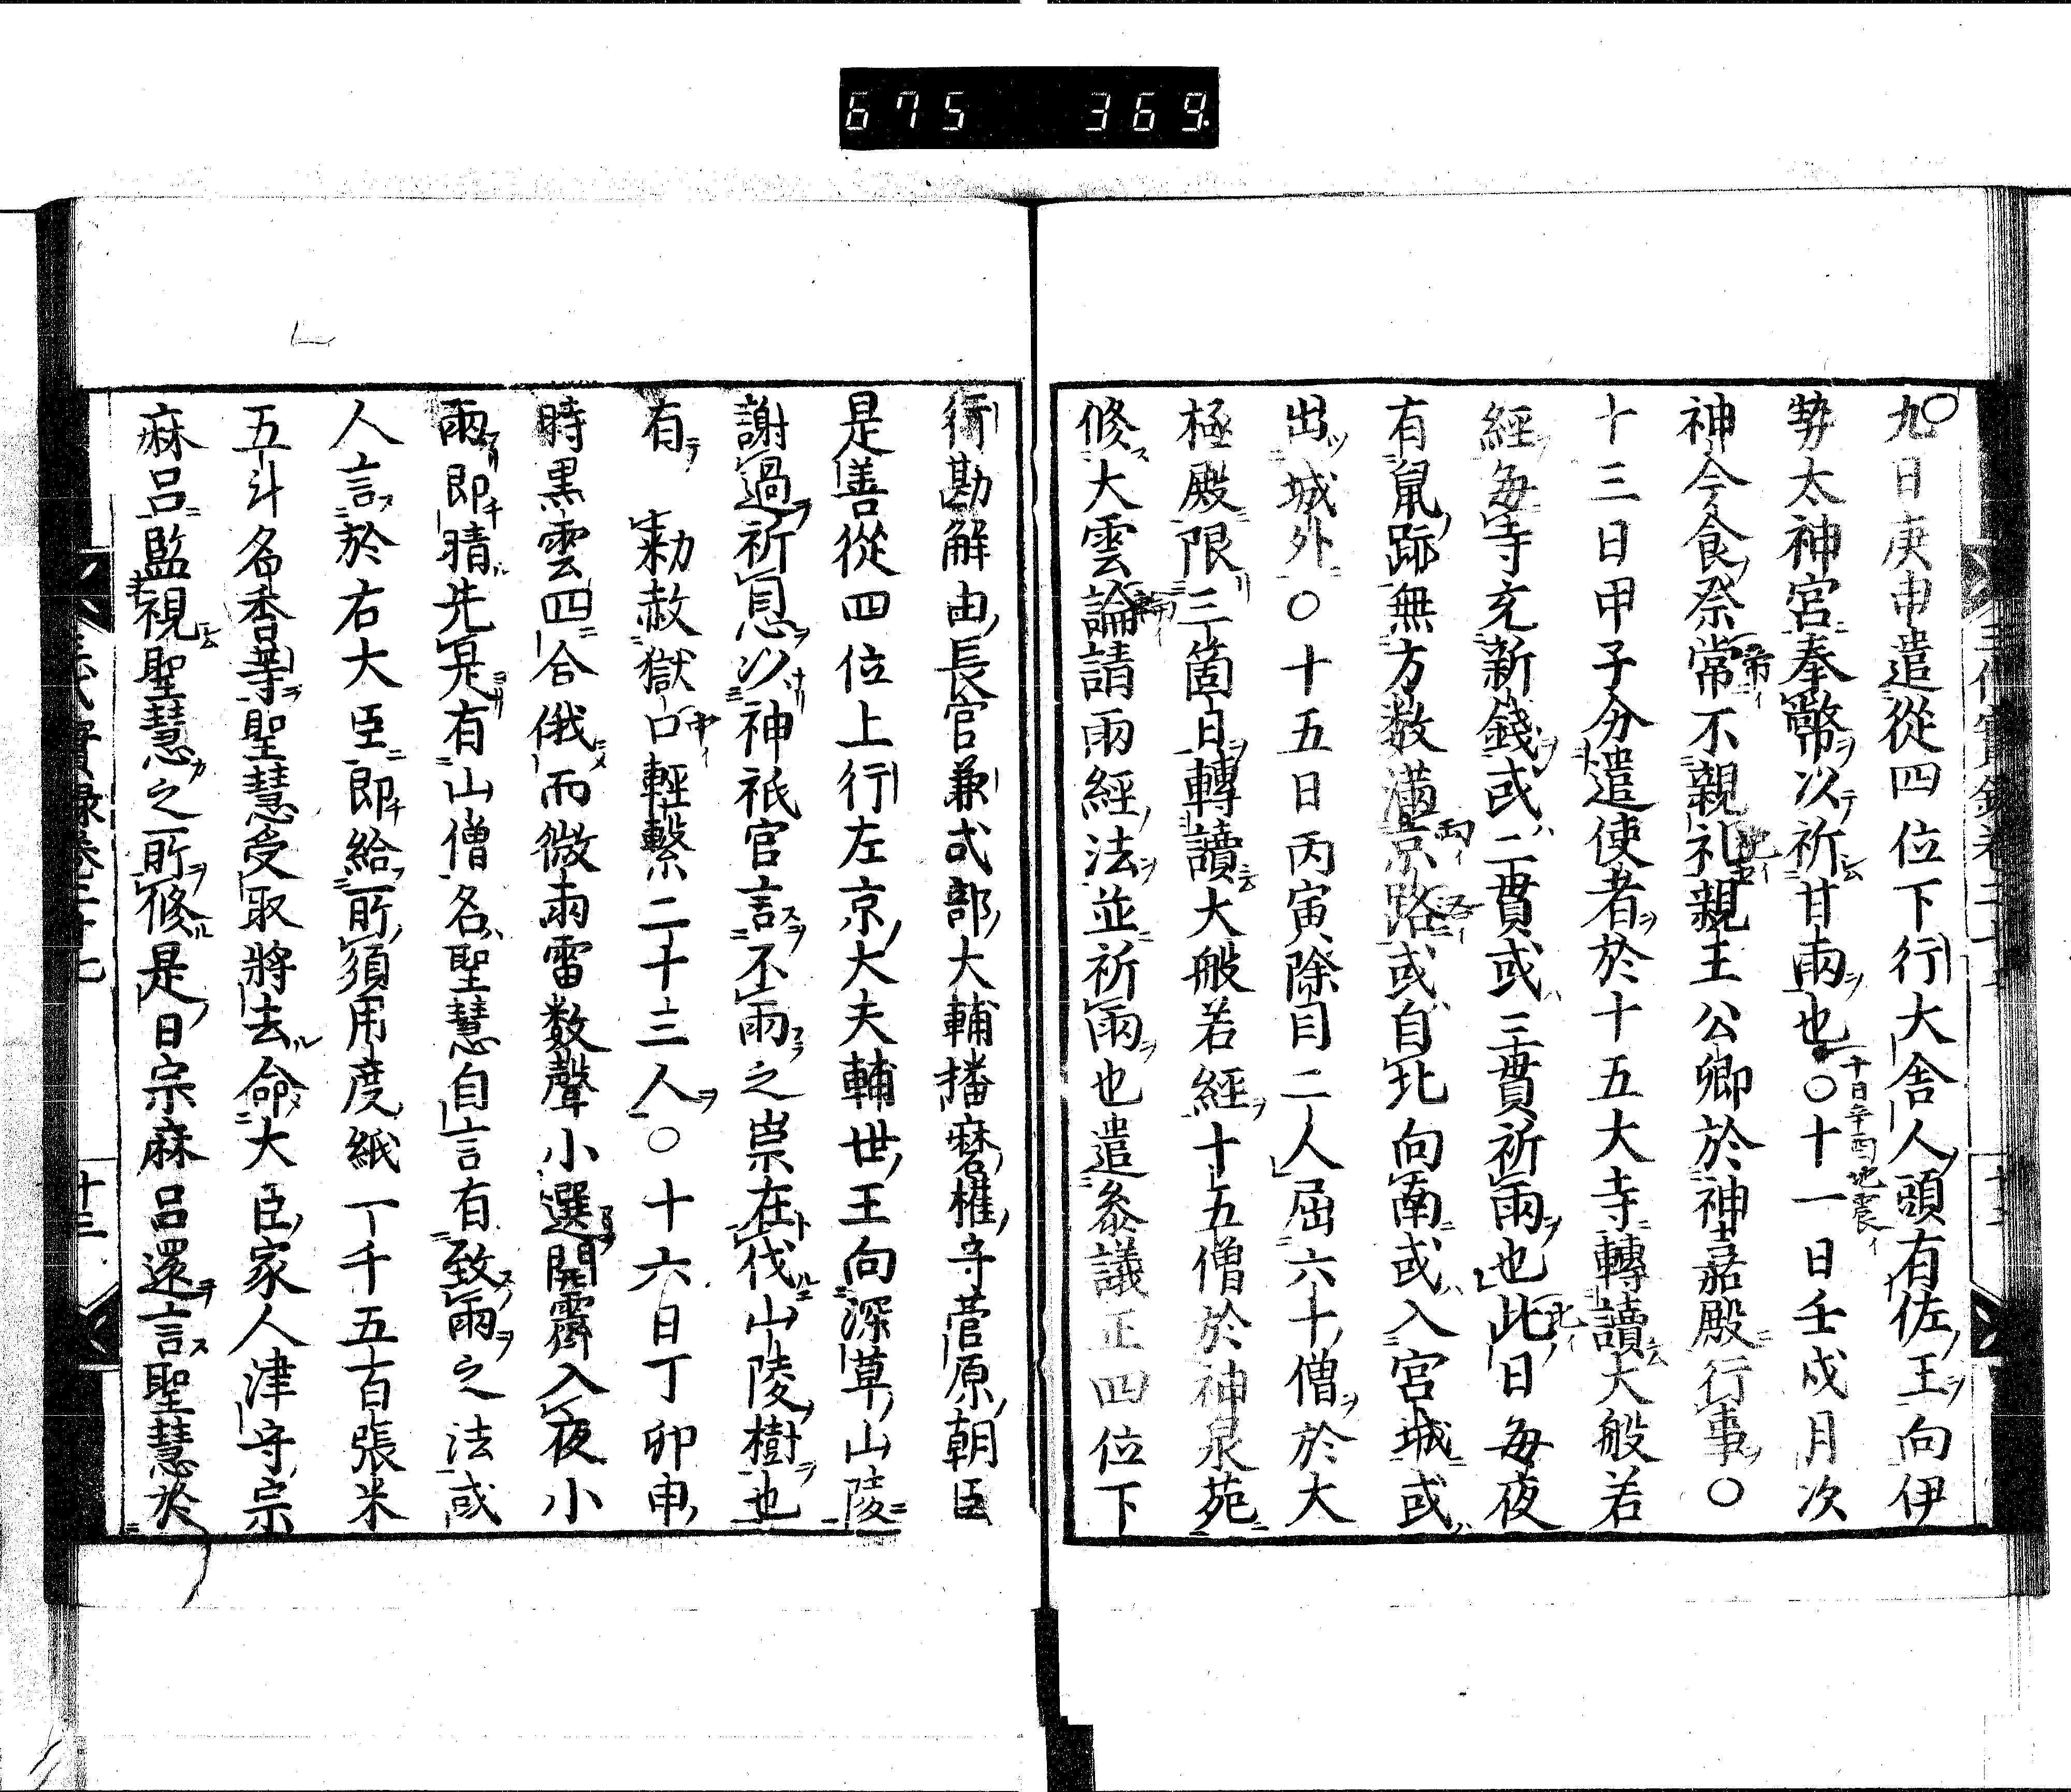 675 369.
九日庚申遣從四位下行大舎人頭有佐王向伊
勢太神宮奉幣以祈甘雨也○十一日壬戌月次
十日辛酉地震イ
神今食祭常不親礼親王公卿於神嘉殿行事○
十三日甲子分遣使者於十五大寺轉讀大般若
經毎寺充新錢或二貫或三貫祈雨也此日毎夜
有鼠跡無方数滿京路或自北向南或入宮城或
出城外○十五日丙寅除目二人屈六十僧於大
極殿限三箇日轉讀大般若經十五僧於神泉苑
修大雲論請雨經法並祈雨也遣叅議正四位下
行勘解由長官兼式部大輔播磨權守菅原朝臣
是善從四位上行左京大夫輔世王向深草山陵
謝過祈恩以神祇官言不雨之祟在伐山陵樹也
有 勅赦獄口輕繫二十三人○十六日丁卯申
時黒雲四合俄而微雨雷数聲小選開霽入夜小
雨即晴先是有山僧名聖慧自言有致雨之法或
人言於右大臣即給所須用度紙一千五百張米
五斗名香等聖慧受取將去命大臣家人津守宗
麻呂監視聖慧之所修是日宗麻呂還言聖慧於